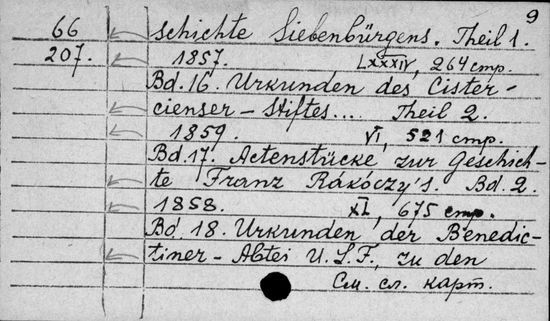 9
66 schichte Siebenbürgens. Theil 1.
207. 1857. LXXXIV, 264 стр.
Bd. 16. Urkunden des Cister-
cienser-Stiftes... Theil 2.
1859. VI, 521 стр.
Bd. 17. Actenstücke zur Geschich-
te Franz Rákóczy's. Bd. 2.
1858. XI, 675 стр.
Bd. 18. Urkunden der Benedic-
tiner-Abtei U.L.F., zu den
См. сл. карт.